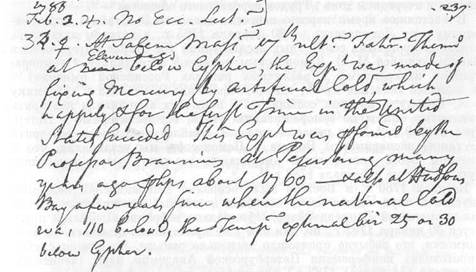 1788
Feb. 2. 24. No Ecc. Lect. 23°
3. 2. At Salem Mass. 17th ult. Fahr. Therm.
at Eleven deg. below Cypher, the Expt. was made of
fixing Mercury by artificial Cold, which
happily & for the first Time in the United
States succeeded This expt. was pformed by the
Professor Braunius at Petersburg many
years ago phps about 1760 & also at Hudsons
Bay a few years since when the natural Cold
was 110 below, the Temp. external air 25 or 30
below Cypher.